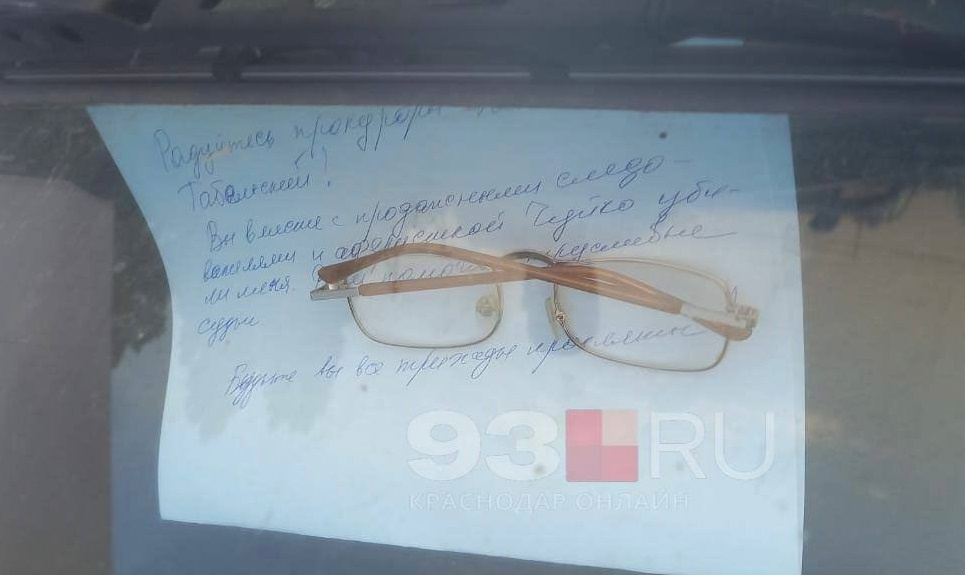 Радуйтесь прокуроры
Табальский!
Вы вместе с продажными следо-
вателями и аферисткой Чуйко уби-
ли меня. помо
судьи
Будьте вы все трижды прокляты
93.RU
КРАСНОДАР ОНЛАЙН